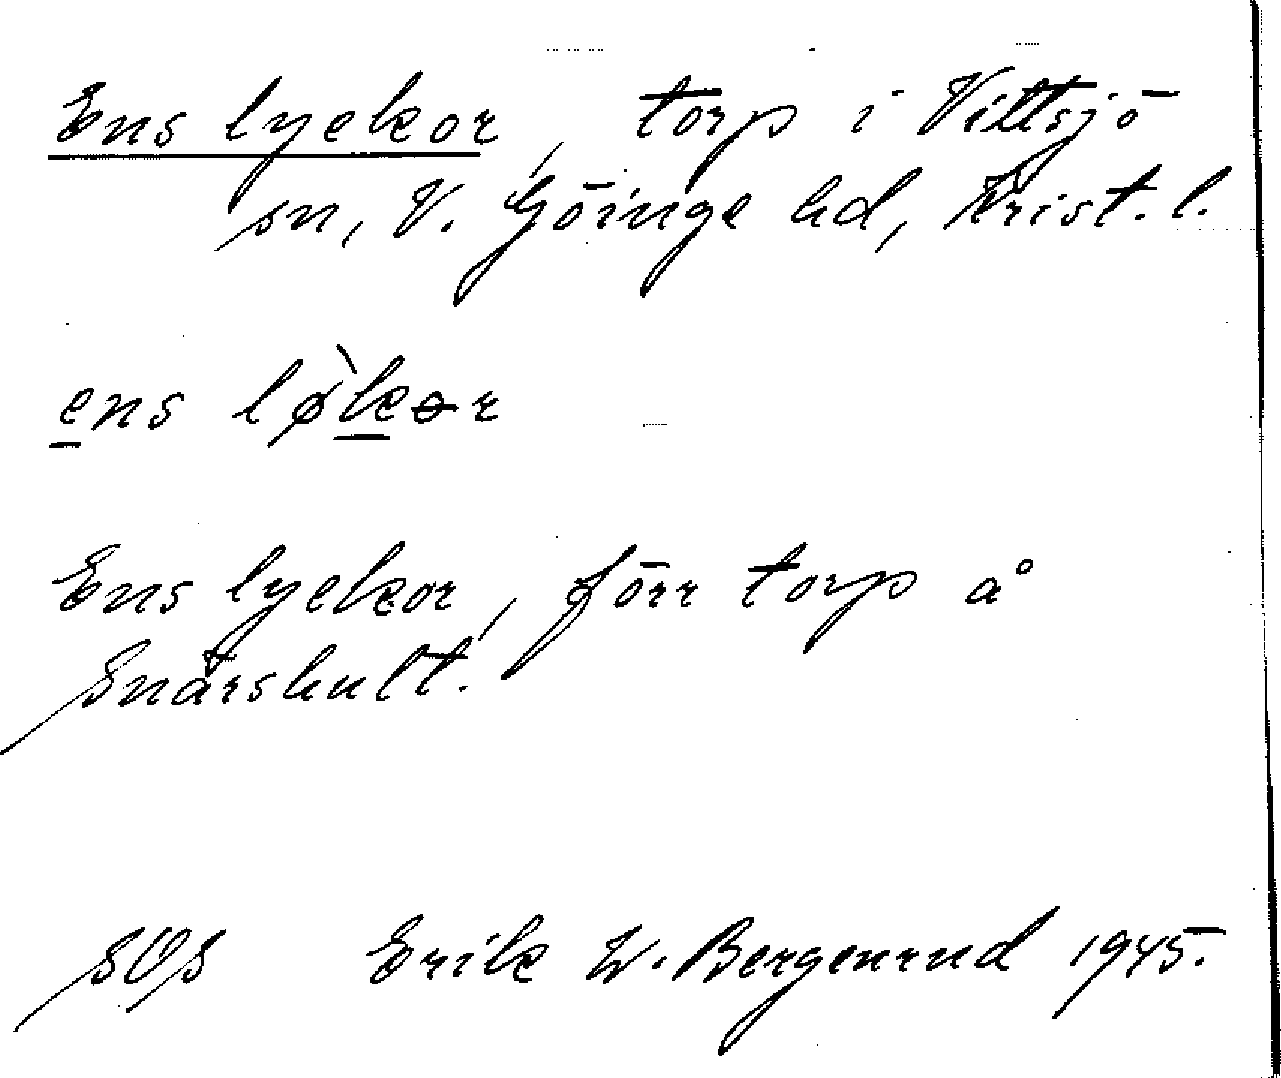 Ens lyckor, torp i Vittsjö
sn, V. Göinge hd, Krist. l.
ens lø̀kər
Ens lyckor, förr torp å
Snårshult.
SOS Erik W. Bergenrud 1945.